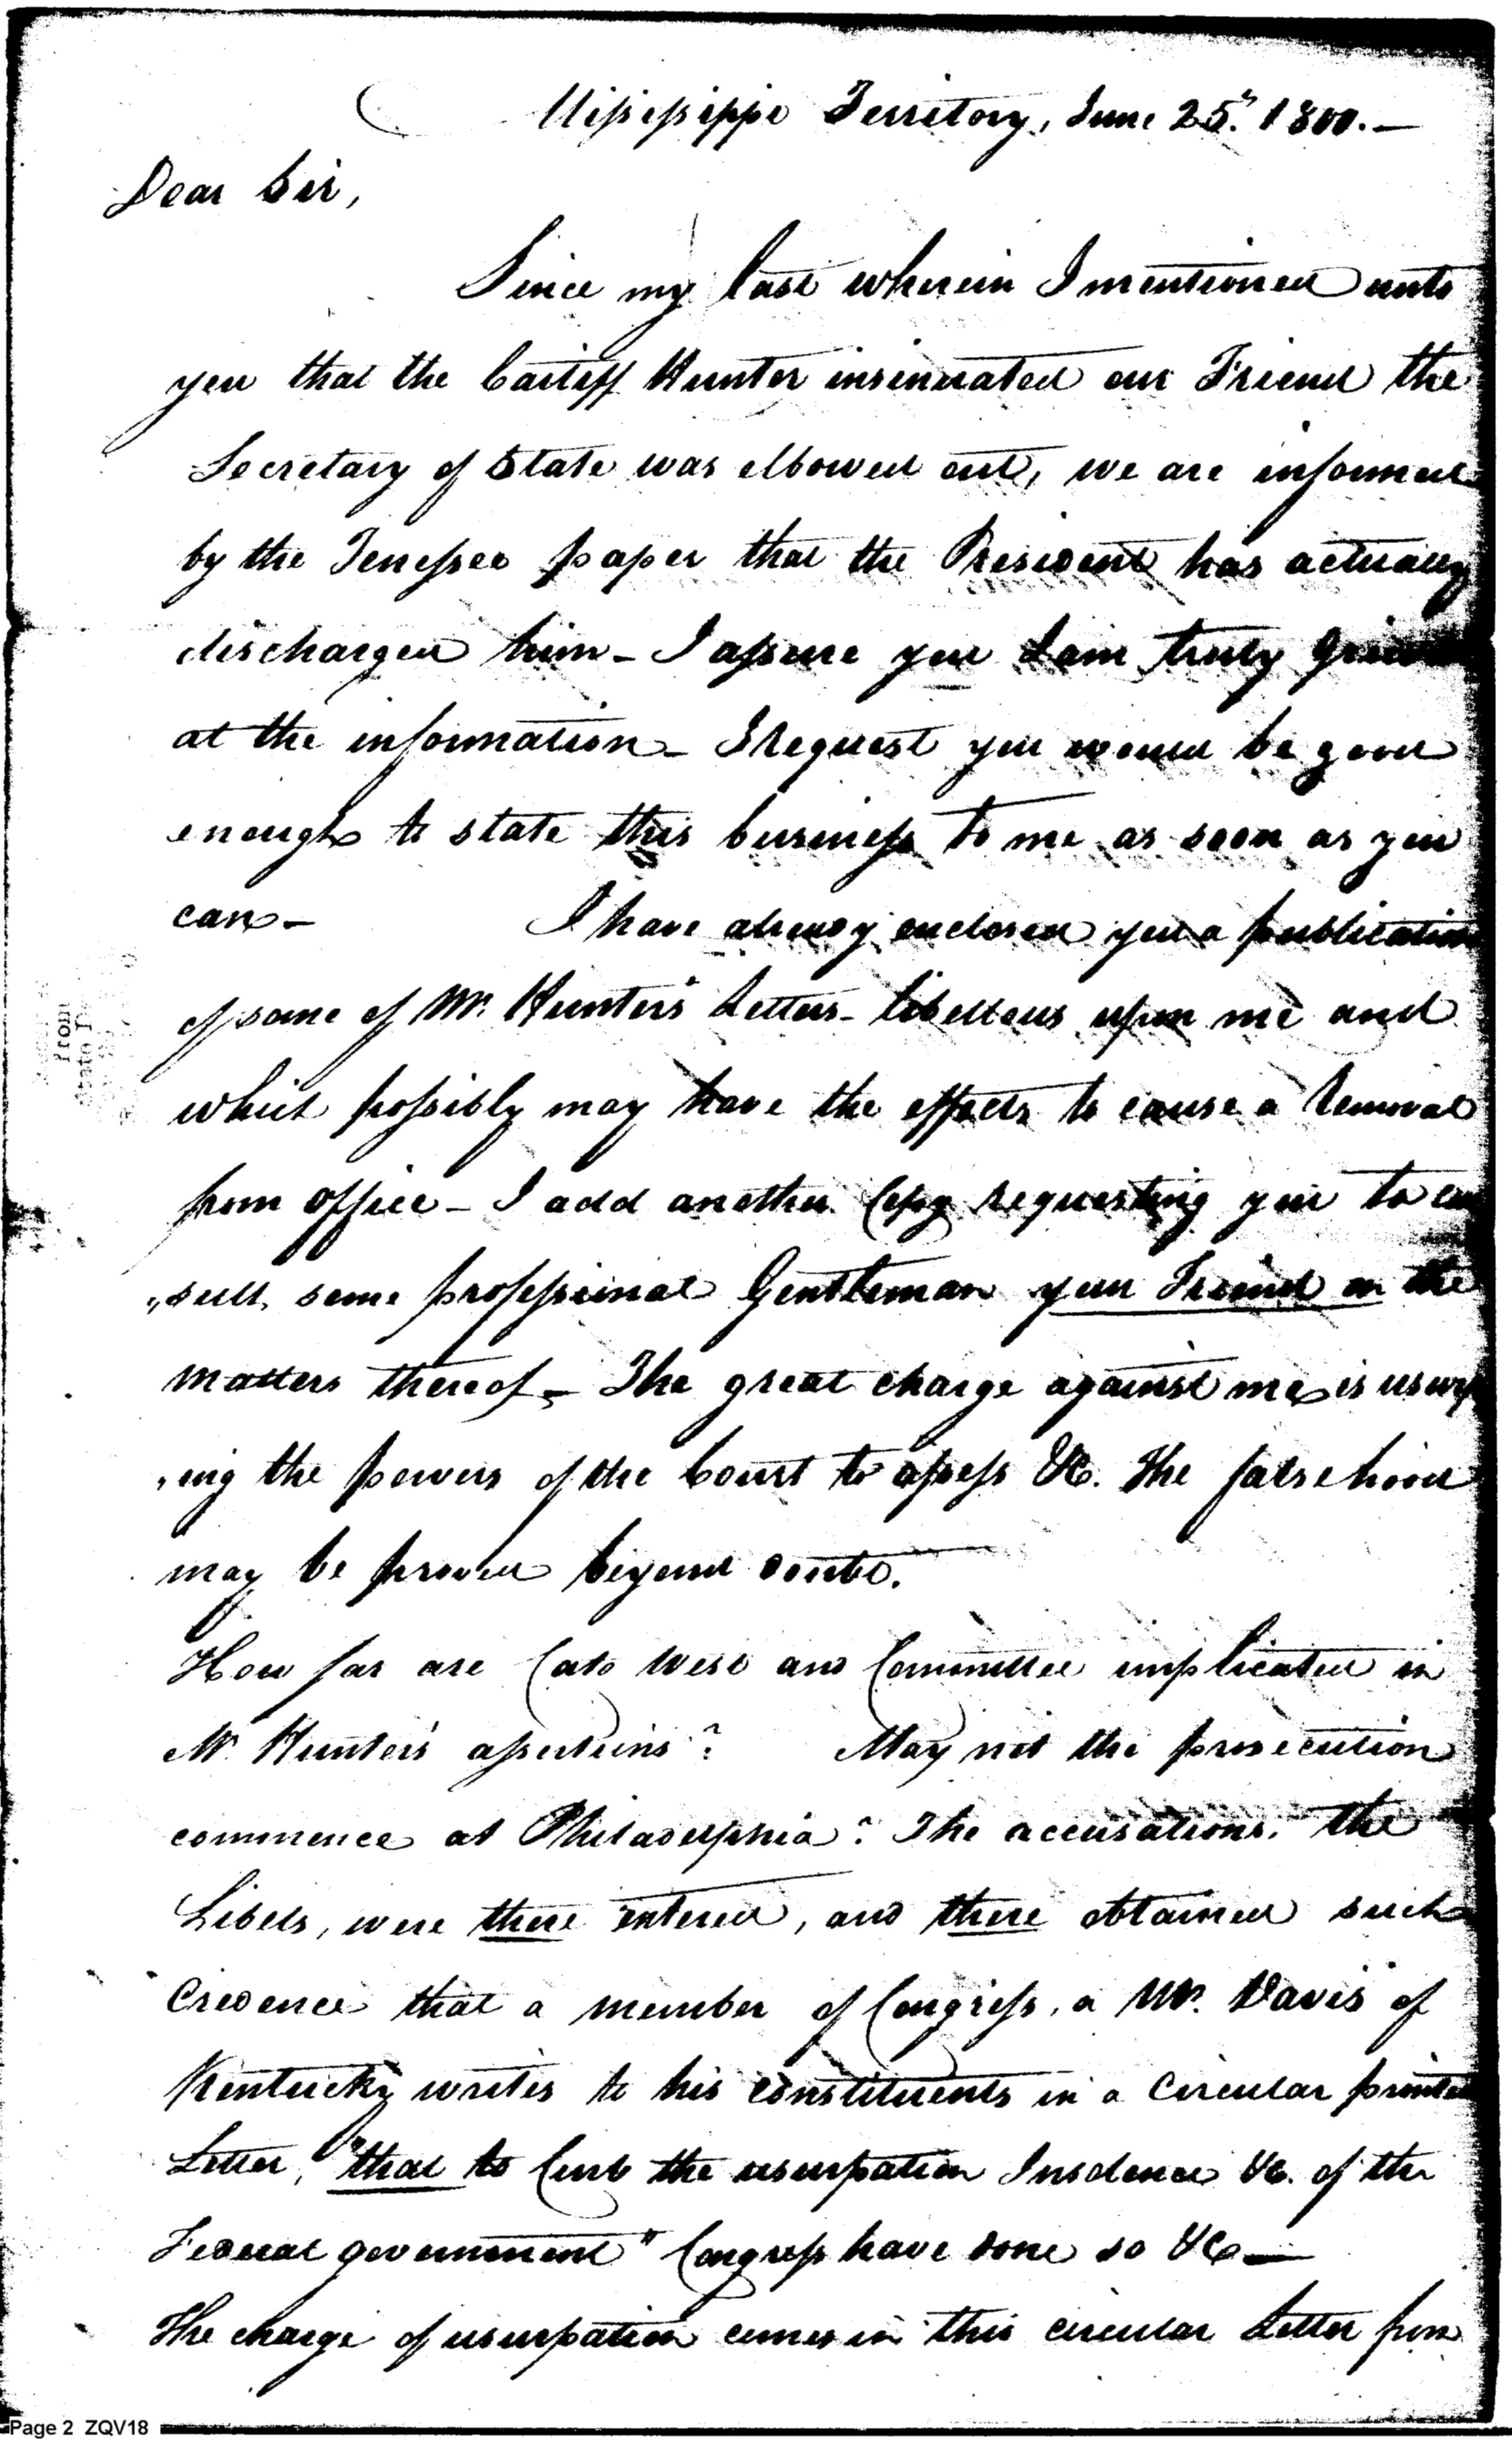 Missisippi Territory, June 25th. 1800.—
Dear Sir,
Since my last wherein I mentioned unto
you that the Caitiff Hunter insinuated our Friend the
Secretary of State was elbowed out, we are informed
by the Tenessee paper that the President has actually
discharged him - I assure you I am truly
at the information - I request you would be good
enough to state this business to me as soon as you
can -          I have already enclosed you a publication
of some of Mr. Hunter's Letters - libellous upon me and
which possibly may have the effects to cause a removal
from office - I add another Copy requesting you to con
"sult, some proffssional Gentleman your Friend on the
matters thereof - The great charge against me is usurp
"ing the powers of the Court to assess &c. The falsehood
may be proved beyond doubt.
How far are Cato West and Committee implicated in
Mr. Hunter's assertions?          May not the prosecution
commence at Philadelphia? The accusations, the
Libels, were there entered, and there obtained such
Credence that a member of Congress, a Mr. Davis of
Kentucky writes to his constituents in a circular printed
Letter, "that to Curb the usurpation Insolence &c. of the
Federal government" Congress have done so &c —
The charge of usurpation comes in this circular Letter from
from
State
Page 2 ZQV18